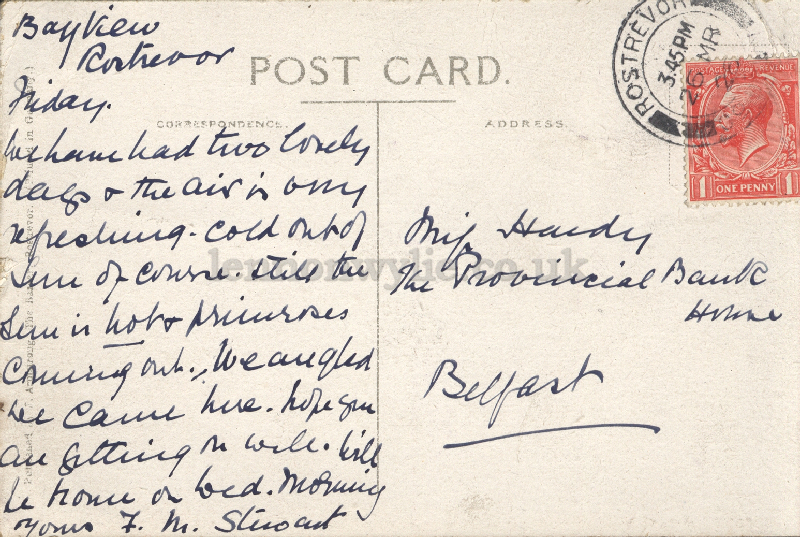 Bayview
Rostrevor
Friday.
POST CARD.
CORRESPONDENCE.
ADDRESS.
We have had two lovely
days & the air is very
refreshing. cold out of
sun of course. still the
sun is hot & primroses
coming out. We are glad
we came here. hope you
are getting on well. Will
be home on Wed. Morning
yours F. M. Stewart
Miss Hardy
The Provincial Bank
House
Belfast
ROSTREVOR
3.45 PM
26 MR
POSTAGE REVENUE
1 ONE PENNY 1
lennonwylie.co.uk